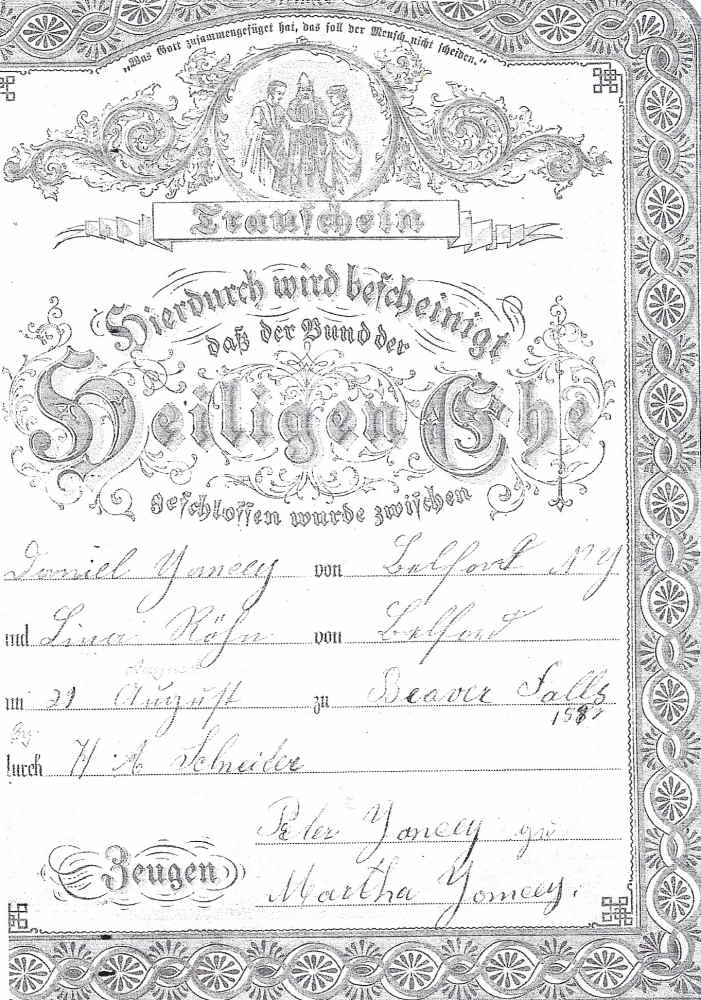 „Was Gott zusammengefüget hat, das soll der Mensch nicht scheiden."
Trauschein
Hierdurch wird bescheinigt
daß der Bund der
Heiligen Ehe
geschlossen wurde zwischen
Daniel Yancey von Belfort N Y
und Lina Röhn von Belfort
August
im 21 August zu Beaver Falls
By
durch H A Schneider
Peter Yancey
Zeugen
Martha Yancey.